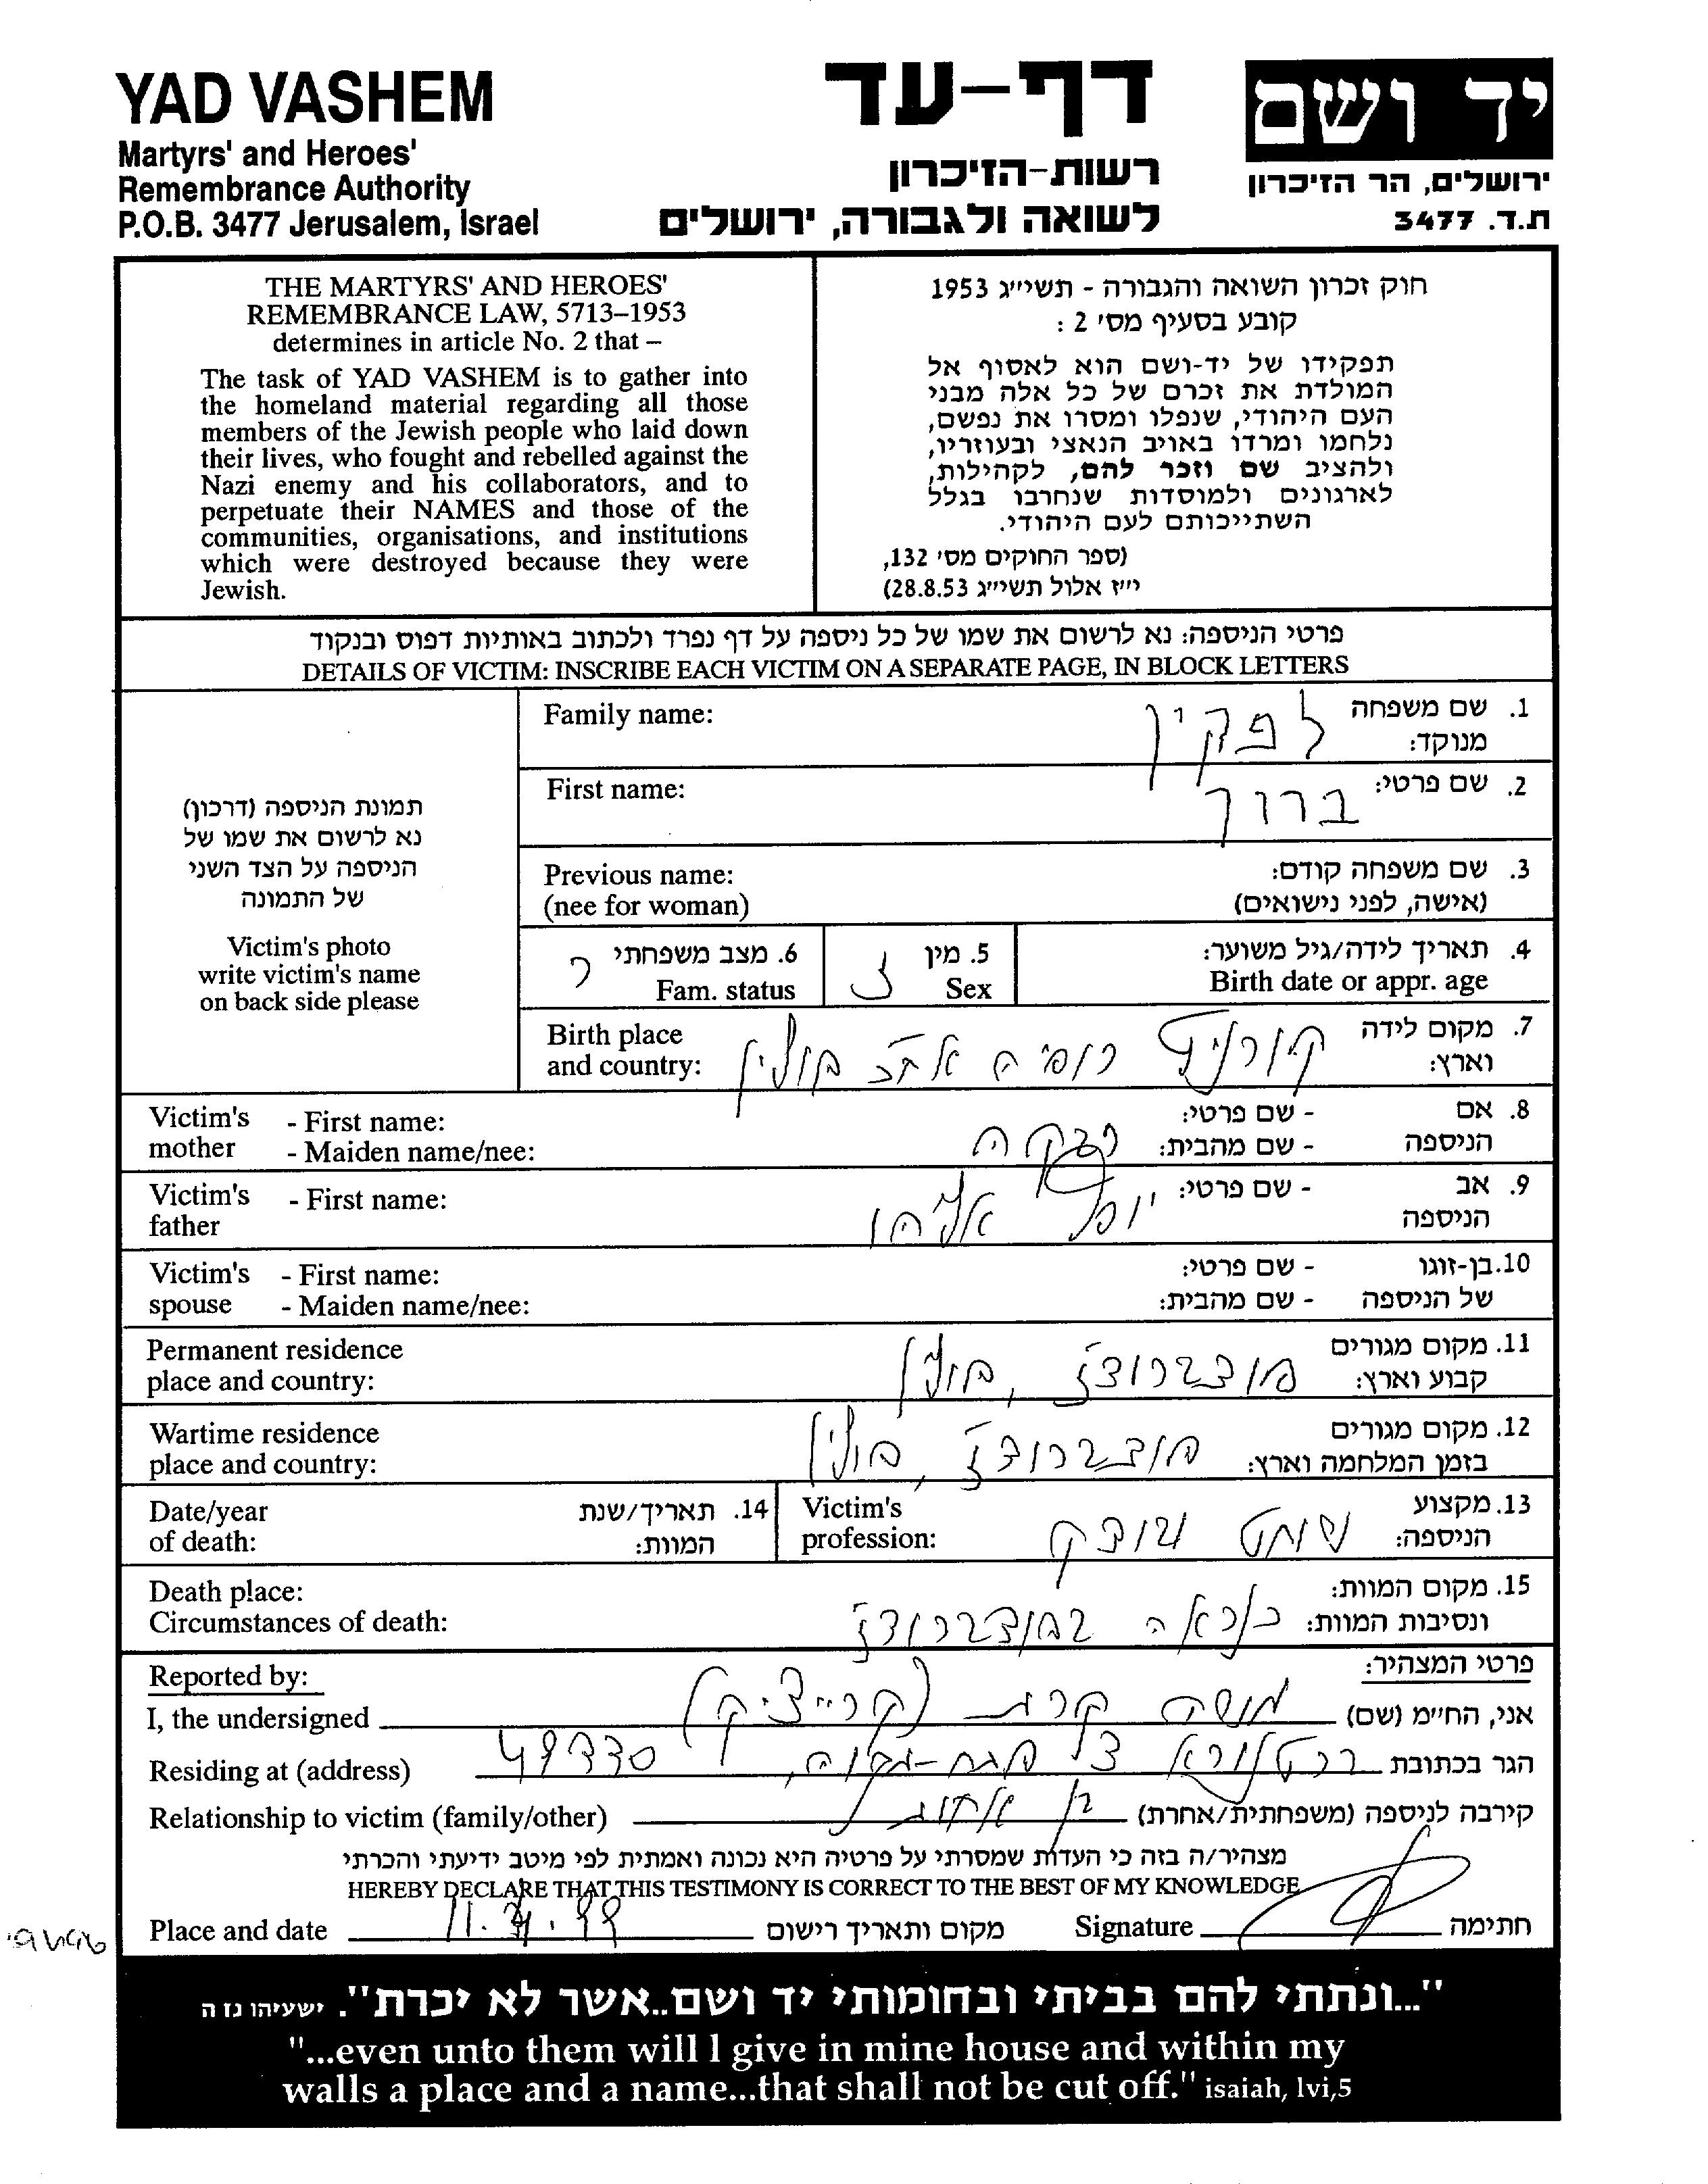 YAD VASHEM
Martyrs' and Heroes'
Remembrance Authority
P.O.B. 3477 Jerusalem, Israel
דף-עד
רשות-הזיכרון
לשואה ולגבורה, ירושלים
יד ושם
ירושלים, הר הזיכרון
ת.ד. 3477
THE MARTYRS' AND HEROES'
REMEMBRANCE LAW, 5713–1953
determines in article No. 2 that –
The task of YAD VASHEM is to gather into
the homeland material regarding all those
members of the Jewish people who laid down
their lives, who fought and rebelled against the
Nazi enemy and his collaborators, and to
perpetuate their NAMES and those of the
communities, organisations, and institutions
which were destroyed because they were
Jewish.
חוק זכרון השואה והגבורה - תשי״ג 1953
קובע בסעיף מס׳ 2 :
תפקידו של יד-ושם הוא לאסוף אל
המולדת את זכרם של כל אלה מבני
העם היהודי, שנפלו ומסרו את נפשם,
נלחמו ומרדו באויב הנאצי ובעוזריו,
ולהציב שם וזכר להם, לקהילות,
לארגונים ולמוסדות שנחרבו בגלל
השתייכותם לעם היהודי.
(ספר החוקים מס׳ 132,
י״ז אלול תשי״ג 28.8.53)
פרטי הניספה: נא לרשום את שמו של כל ניספה על דף נפרד ולכתוב באותיות דפוס ובנקוד
DETAILS OF VICTIM: INSCRIBE EACH VICTIM ON A SEPARATE PAGE, IN BLOCK LETTERS
תמונת הניספה (דרכון)
נא לרשום את שמו של
הניספה על הצד השני
של התמונה
Victim's photo
write victim's name
on back side please
1. שם משפחה מנוקד: לפקין Family name:
2. שם פרטי: ברוך First name:
3. שם משפחה קודם: Previous name:
(אישה, לפני נישואים) (nee for woman)
4. תאריך לידה/גיל משוער:
Birth date or appr. age
5. מין ז
Sex
6. מצב משפחתי ר
Fam. status
7. מקום לידה וארץ: רוסיה פולין Birth place and country:
8. אם הניספה - שם פרטי: Victim's mother - First name:
- שם מהבית: רבקה - Maiden name/nee:
9. אב הניספה - שם פרטי: יוסף אליהו Victim's father - First name:
10. בן-זוגו של הניספה - שם פרטי: Victim's spouse - First name:
- שם מהבית: - Maiden name/nee:
11. מקום מגורים קבוע וארץ: פולין Permanent residence place and country:
12. מקום מגורים בזמן המלחמה וארץ: פולין Wartime residence place and country:
13. מקצוע הניספה: שוחט ובודק Victim's profession:
14. תאריך/שנת המוות: Date/year of death:
15. מקום המוות: Death place:
ונסיבות המוות: Circumstances of death:
פרטי המצהיר: Reported by:
אני, החי״מ (שם) משה קרת I, the undersigned
הגר בכתובת ברטנורא פתח-תקוה, 49330 Residing at (address)
קירבה לניספה (משפחתית/אחרת) בן אחות Relationship to victim (family/other)
מצהיר/ה בזה כי העדות שמסרתי על פרטיה היא נכונה ואמתית לפי מיטב ידיעתי והכרתי
HEREBY DECLARE THAT THIS TESTIMONY IS CORRECT TO THE BEST OF MY KNOWLEDGE
Place and date 11.4.99 מקום ותאריך רישום Signature חתימה
"...ונתתי להם בביתי ובחומותי יד ושם..אשר לא יכרת". ישעיהו נז ה
"...even unto them will I give in mine house and within my
walls a place and a name...that shall not be cut off." isaiah, lvi,5